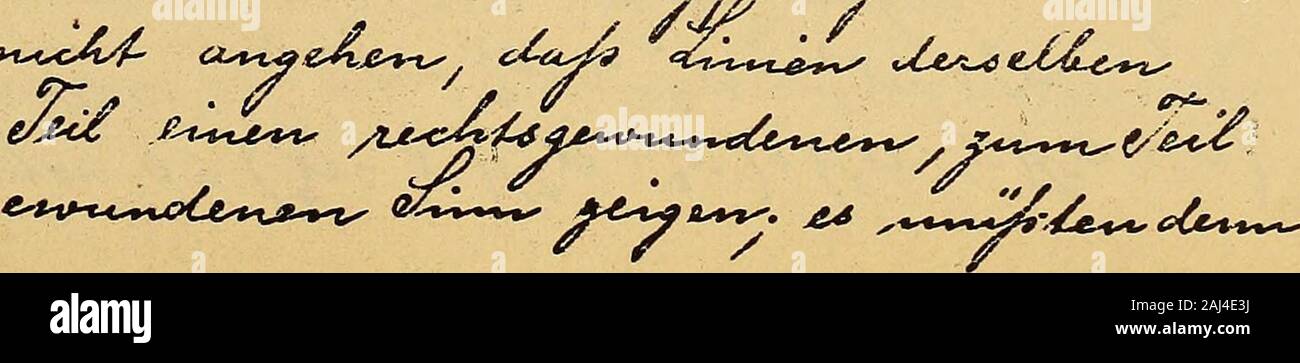 nicht angehen, daß Linien derselben
Teil einen rechtsgewundenen, zum Teil
ewundenen Sinn zeigen; es müßten denn
alamy
Image ID: 2AJ4E3J
www.alamy.com